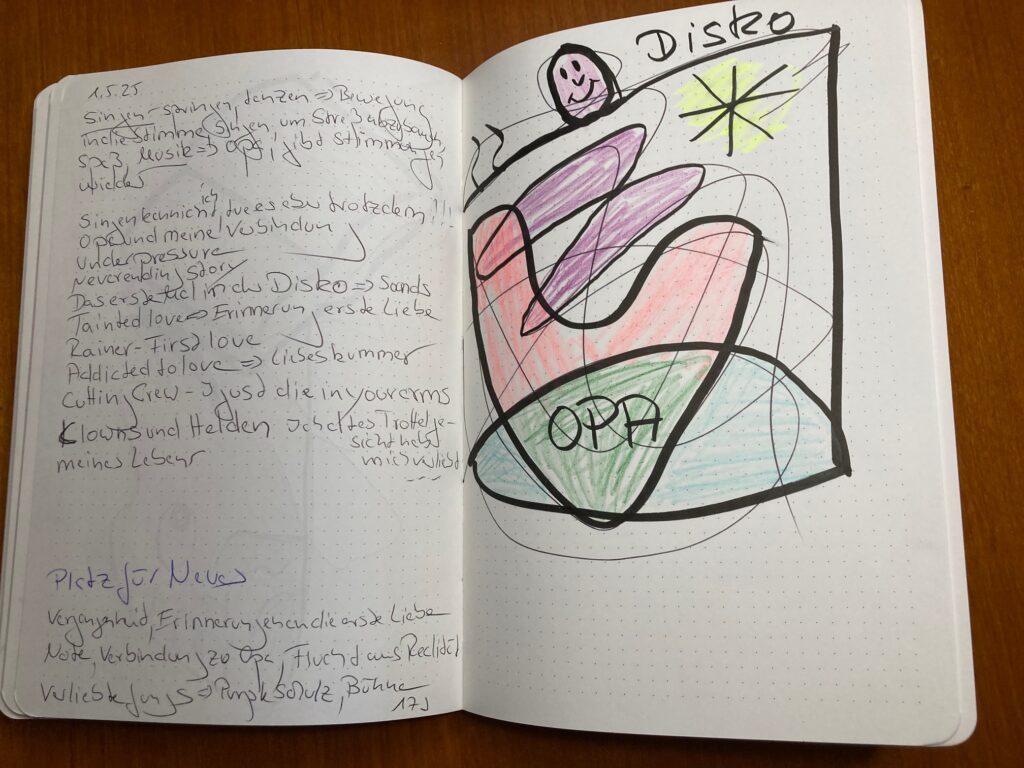 1.5.25
Singen - springen, tanzen => Bewegung
in die Stimme, singen, um Streß abzubauen,
Spaß, Musik => Opa, gibt Stimmungen
wieder
Singen kann ich nicht, tue es aber trotzdem!!!
Opa und meine Verbindung
Under pressure
Neverending Story
Das erste Mal in der Disko => Sands
Tainted love => Erinnerung erste Liebe
Rainer - First love
Addicted to love => Liebeskummer
Cutting Crew - I just die in your arms
Clowns und Helden Ich altes Trottelge-
sicht hab
meines Lebens mich verliebt
....
Platz für Neues
Vergangenheit, Erinnerungen an die erste Liebe
Note, Verbindung zu Opa, Flucht aus Realität
verliebte Jungs => Purple Schulz, Bühne
17J
Disko
OPA